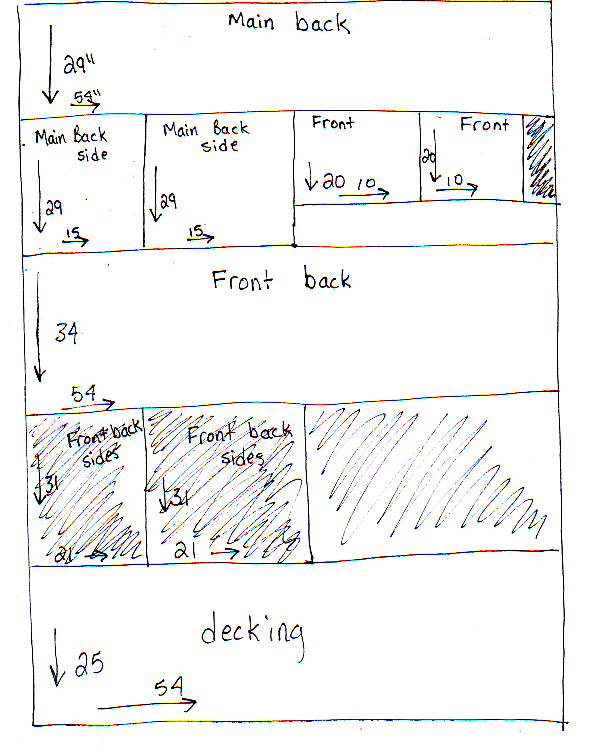 Main back
29"
54"
Main Back
side
29
15
Main Back
side
29
15
Front
20 10
Front
20
10
Front back
34
54
Front back
sides
31
21
Front back
sides
31
21
decking
25
54